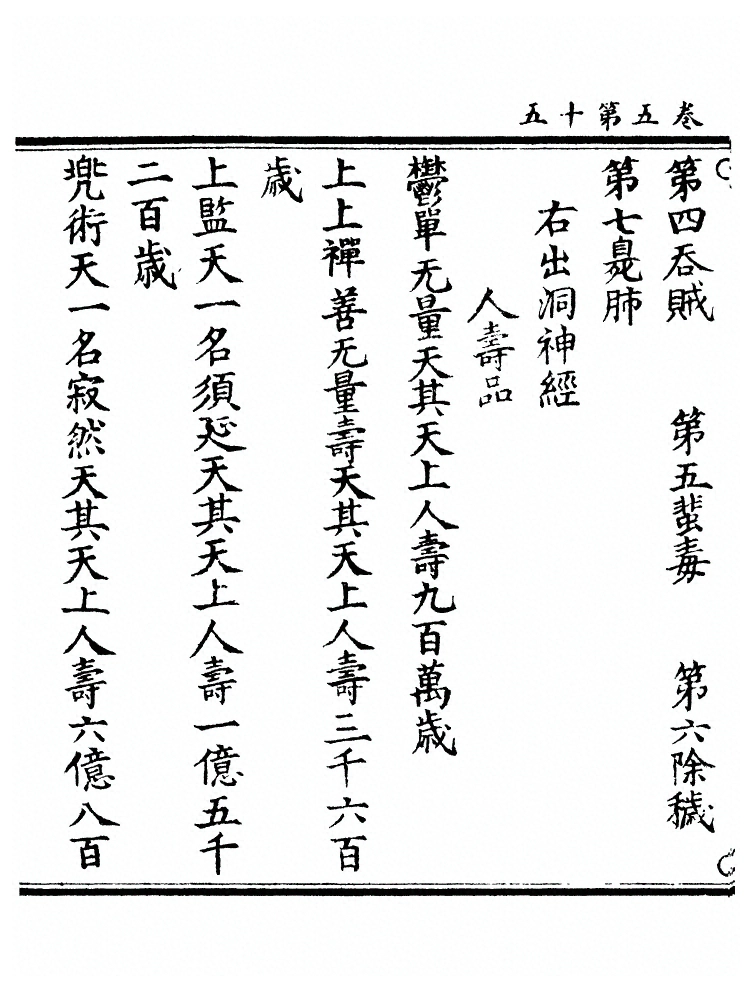 卷五第十五
第四吞賊　第五蜚毒　第六除穢
第七臰肺
右出洞神經
人壽品
鬱單无量天其天上人壽九百萬歲
上上禪善无量壽天其天上人壽三千六百
歲
上監天一名須延天其天上人壽一億五千
二百歲
兠術天一名寂然天其天上人壽六億八百